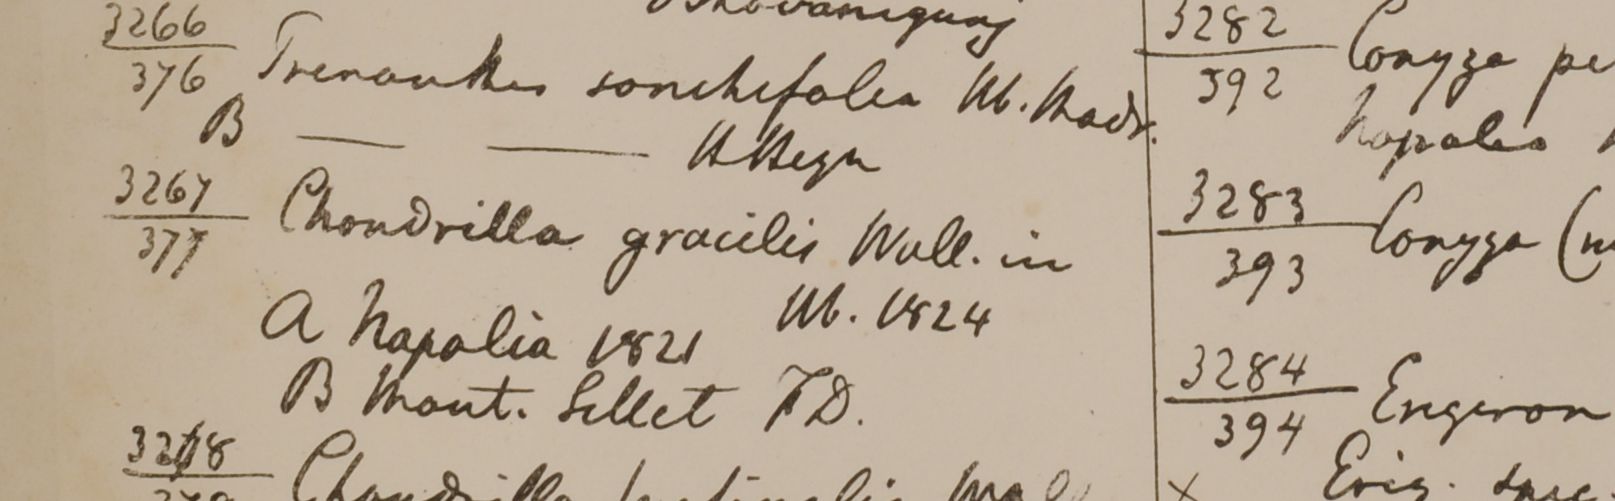 3266
376 Prenanthes sonchifolia Hb. Madr.
B —— —— H Heyn
3267
377 Chondrilla gracilis Wall. in
Hb. 1824
A Napalia 1821
B Mont. Sillet F D.
3268
Chondrilla
3282
392 Conyza
Napalia
3283
393 Conyza
3284
394 Erigeron
× Erig.